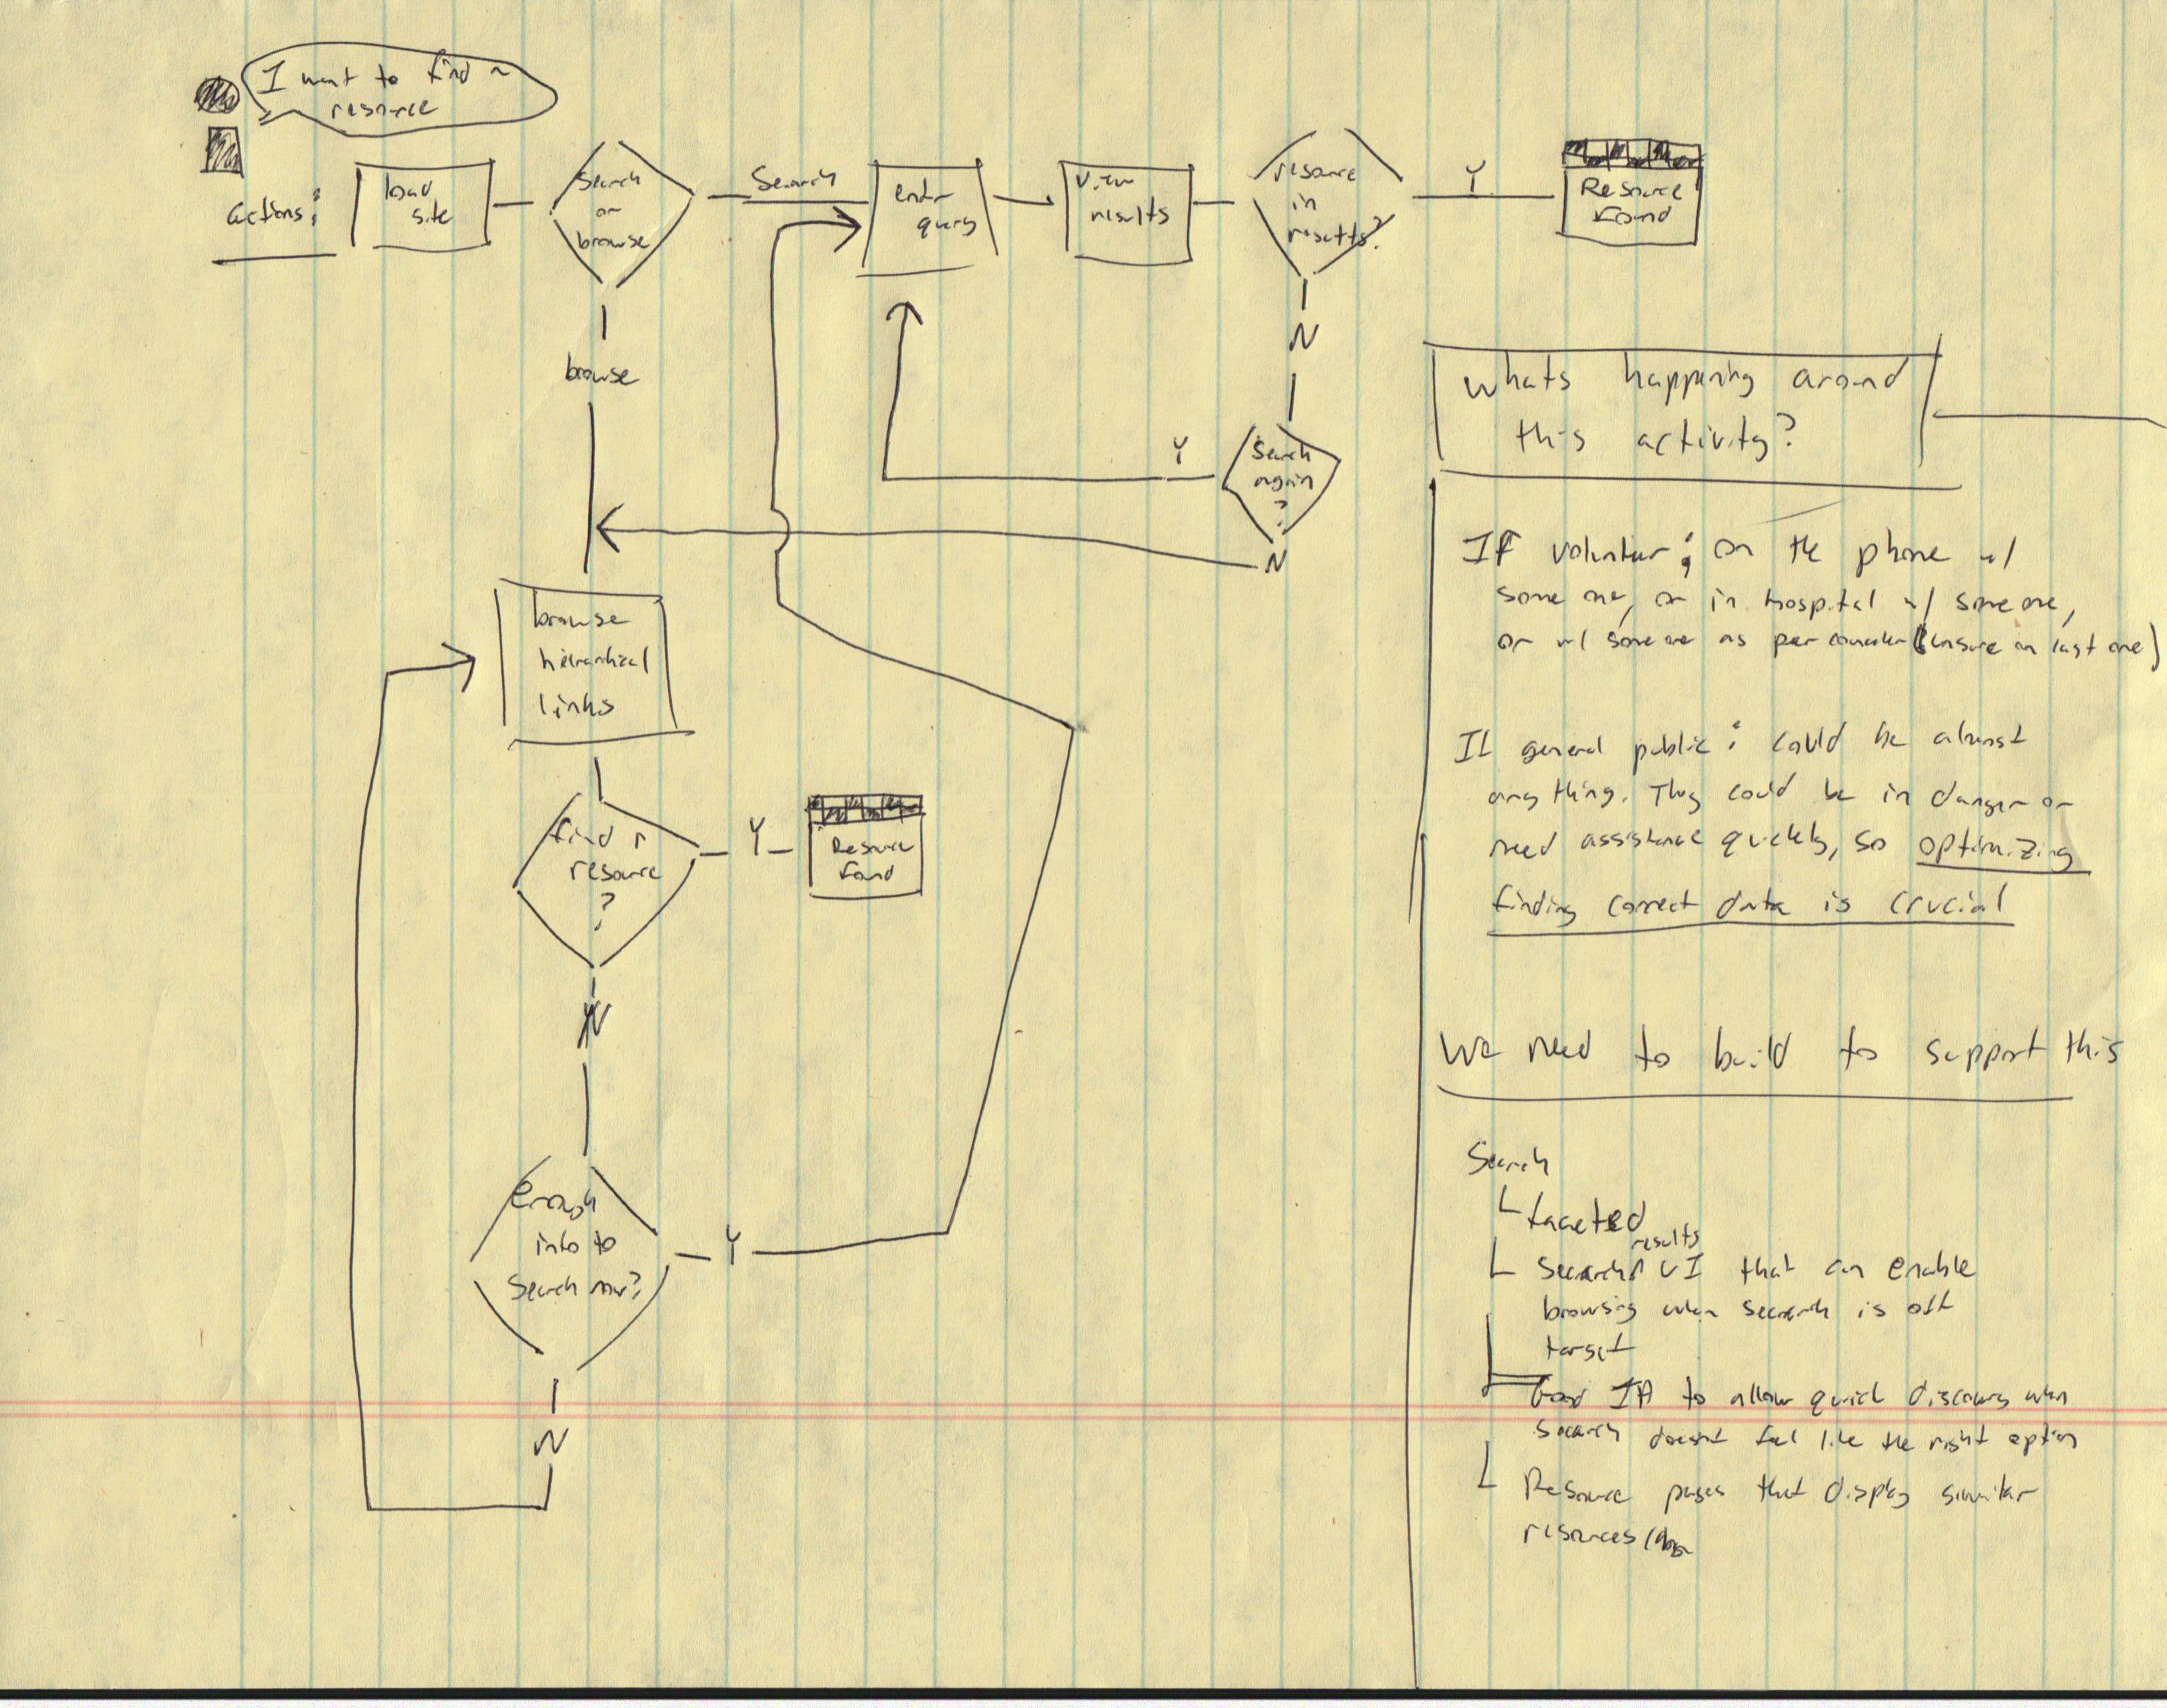 I want to find a
resource
actions:
load
site
Search
or
browse
Search
enter
query
view
results
resource
in
results?
Y
Resource
Found
N
browse
Search
again
?
Y
N
browse
hierarchical
links
find a
resource
?
Y
Resource
found
N
Enough
info to
Search now?
Y
N
whats happening around
this activity?
If volunteer; on the phone w/
some one, or in hospital w/ someone,
or w/ someone as per (unsure on last one)
If general public: could be almost
anything. They could be in danger or
need assistance quickly, so optimizing
finding correct data is crucial
We need to build to support this
Search
faceted
results
Search UI that can enable
browsing when search is off
target
Good IA to allow quick discovery when
search doesnt feel like the right option
Resource pages that display similar
resources